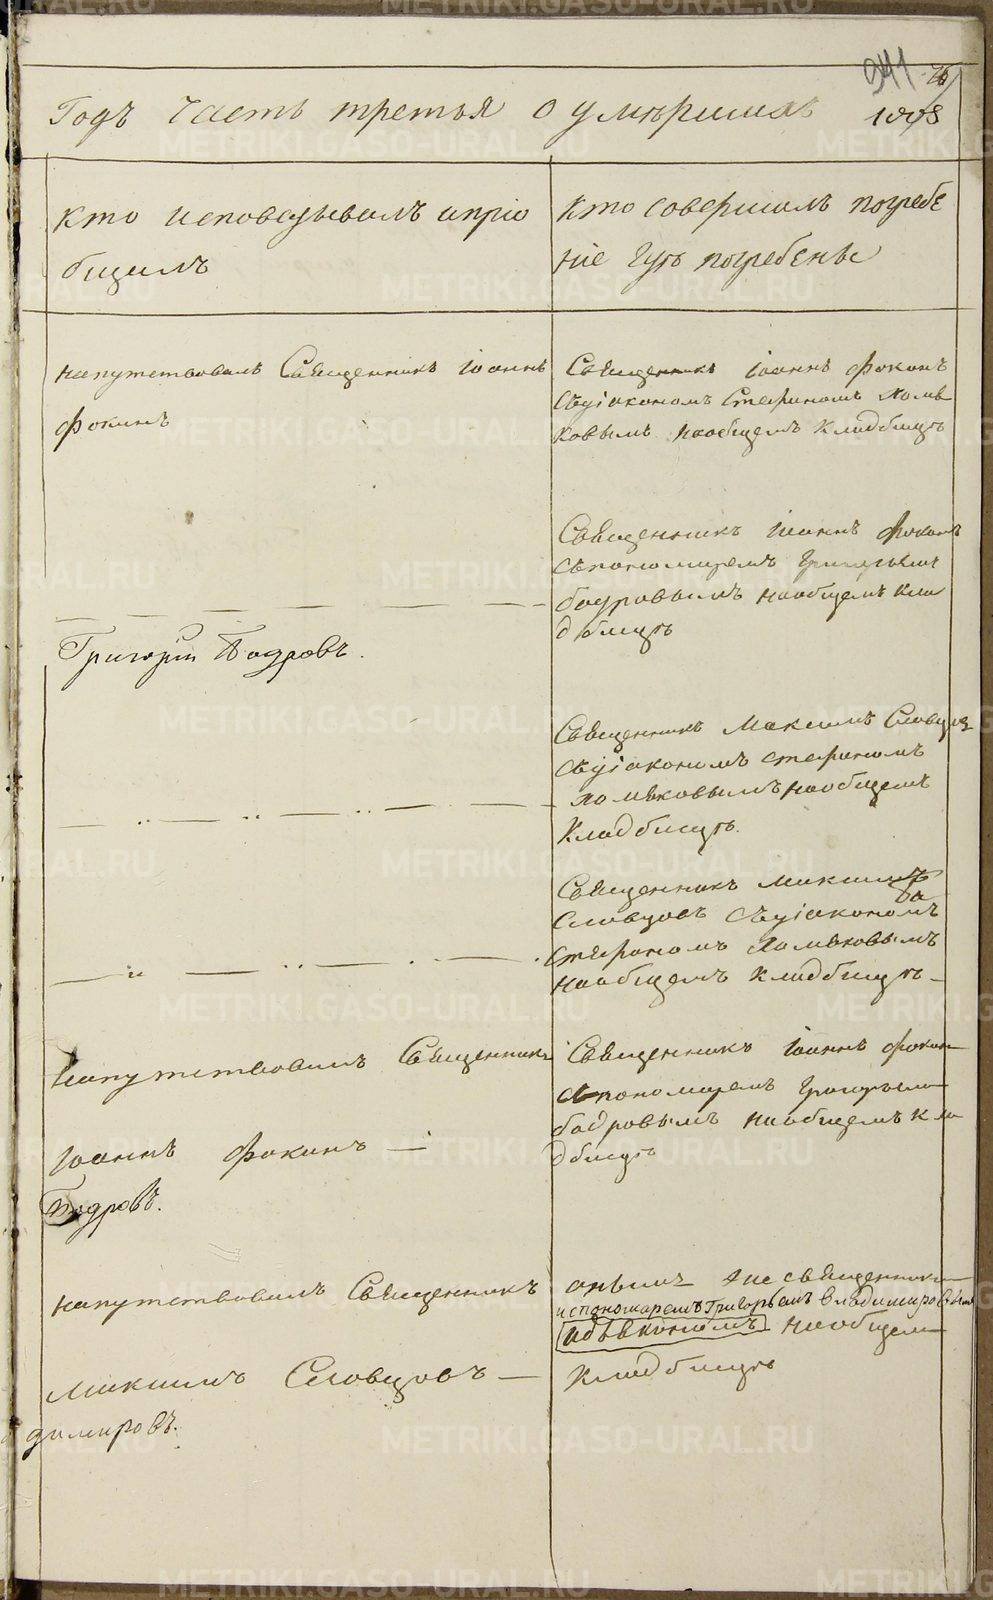 941 76
Годъ часть третья о умершихъ
Кто исповедывалъ иприо
бщилъ
Кто совершалъ погребе
ніе Гдѣ погребены
напутствовалъ Священникъ Іоаннъ
Фокинъ
Священникъ Іоаннъ Фокинъ
Съдіакономъ Стефаномъ Хомя
ковымъ наобщемъ кладбищѣ
Священникъ Іоаннъ Фокинъ
Съпономаремъ Григорьемъ
бодровымъ наобщемъ кла
дбищѣ
Григорій Бодровъ.
Священникъ Максимъ Словцов
Съдіакономъ стефаномъ
хомяковымъ наобщемъ
Кладбищѣ.
Священникъ Максимъ
Словцовъ Съдіакономъ
стефаномъ Хомяковымъ
наобщемъ кладбищѣ
напутствовалъ Священникъ
Іоаннъ Фокинъ
Бодровъ.
Священникъ Іоаннъ Фокин
Спономаремъ Григорьем
бодровымъ наобщемъ кла
дбищѣ
напутствовалъ Священникъ
Максимъ Словцовъ
димировъ.
онымъ же священником
испономаремъ Григорьемъ Владимировым
идьякономъ наобщем
Кладбищѣ
METRIKI.GASO-URAL.RU